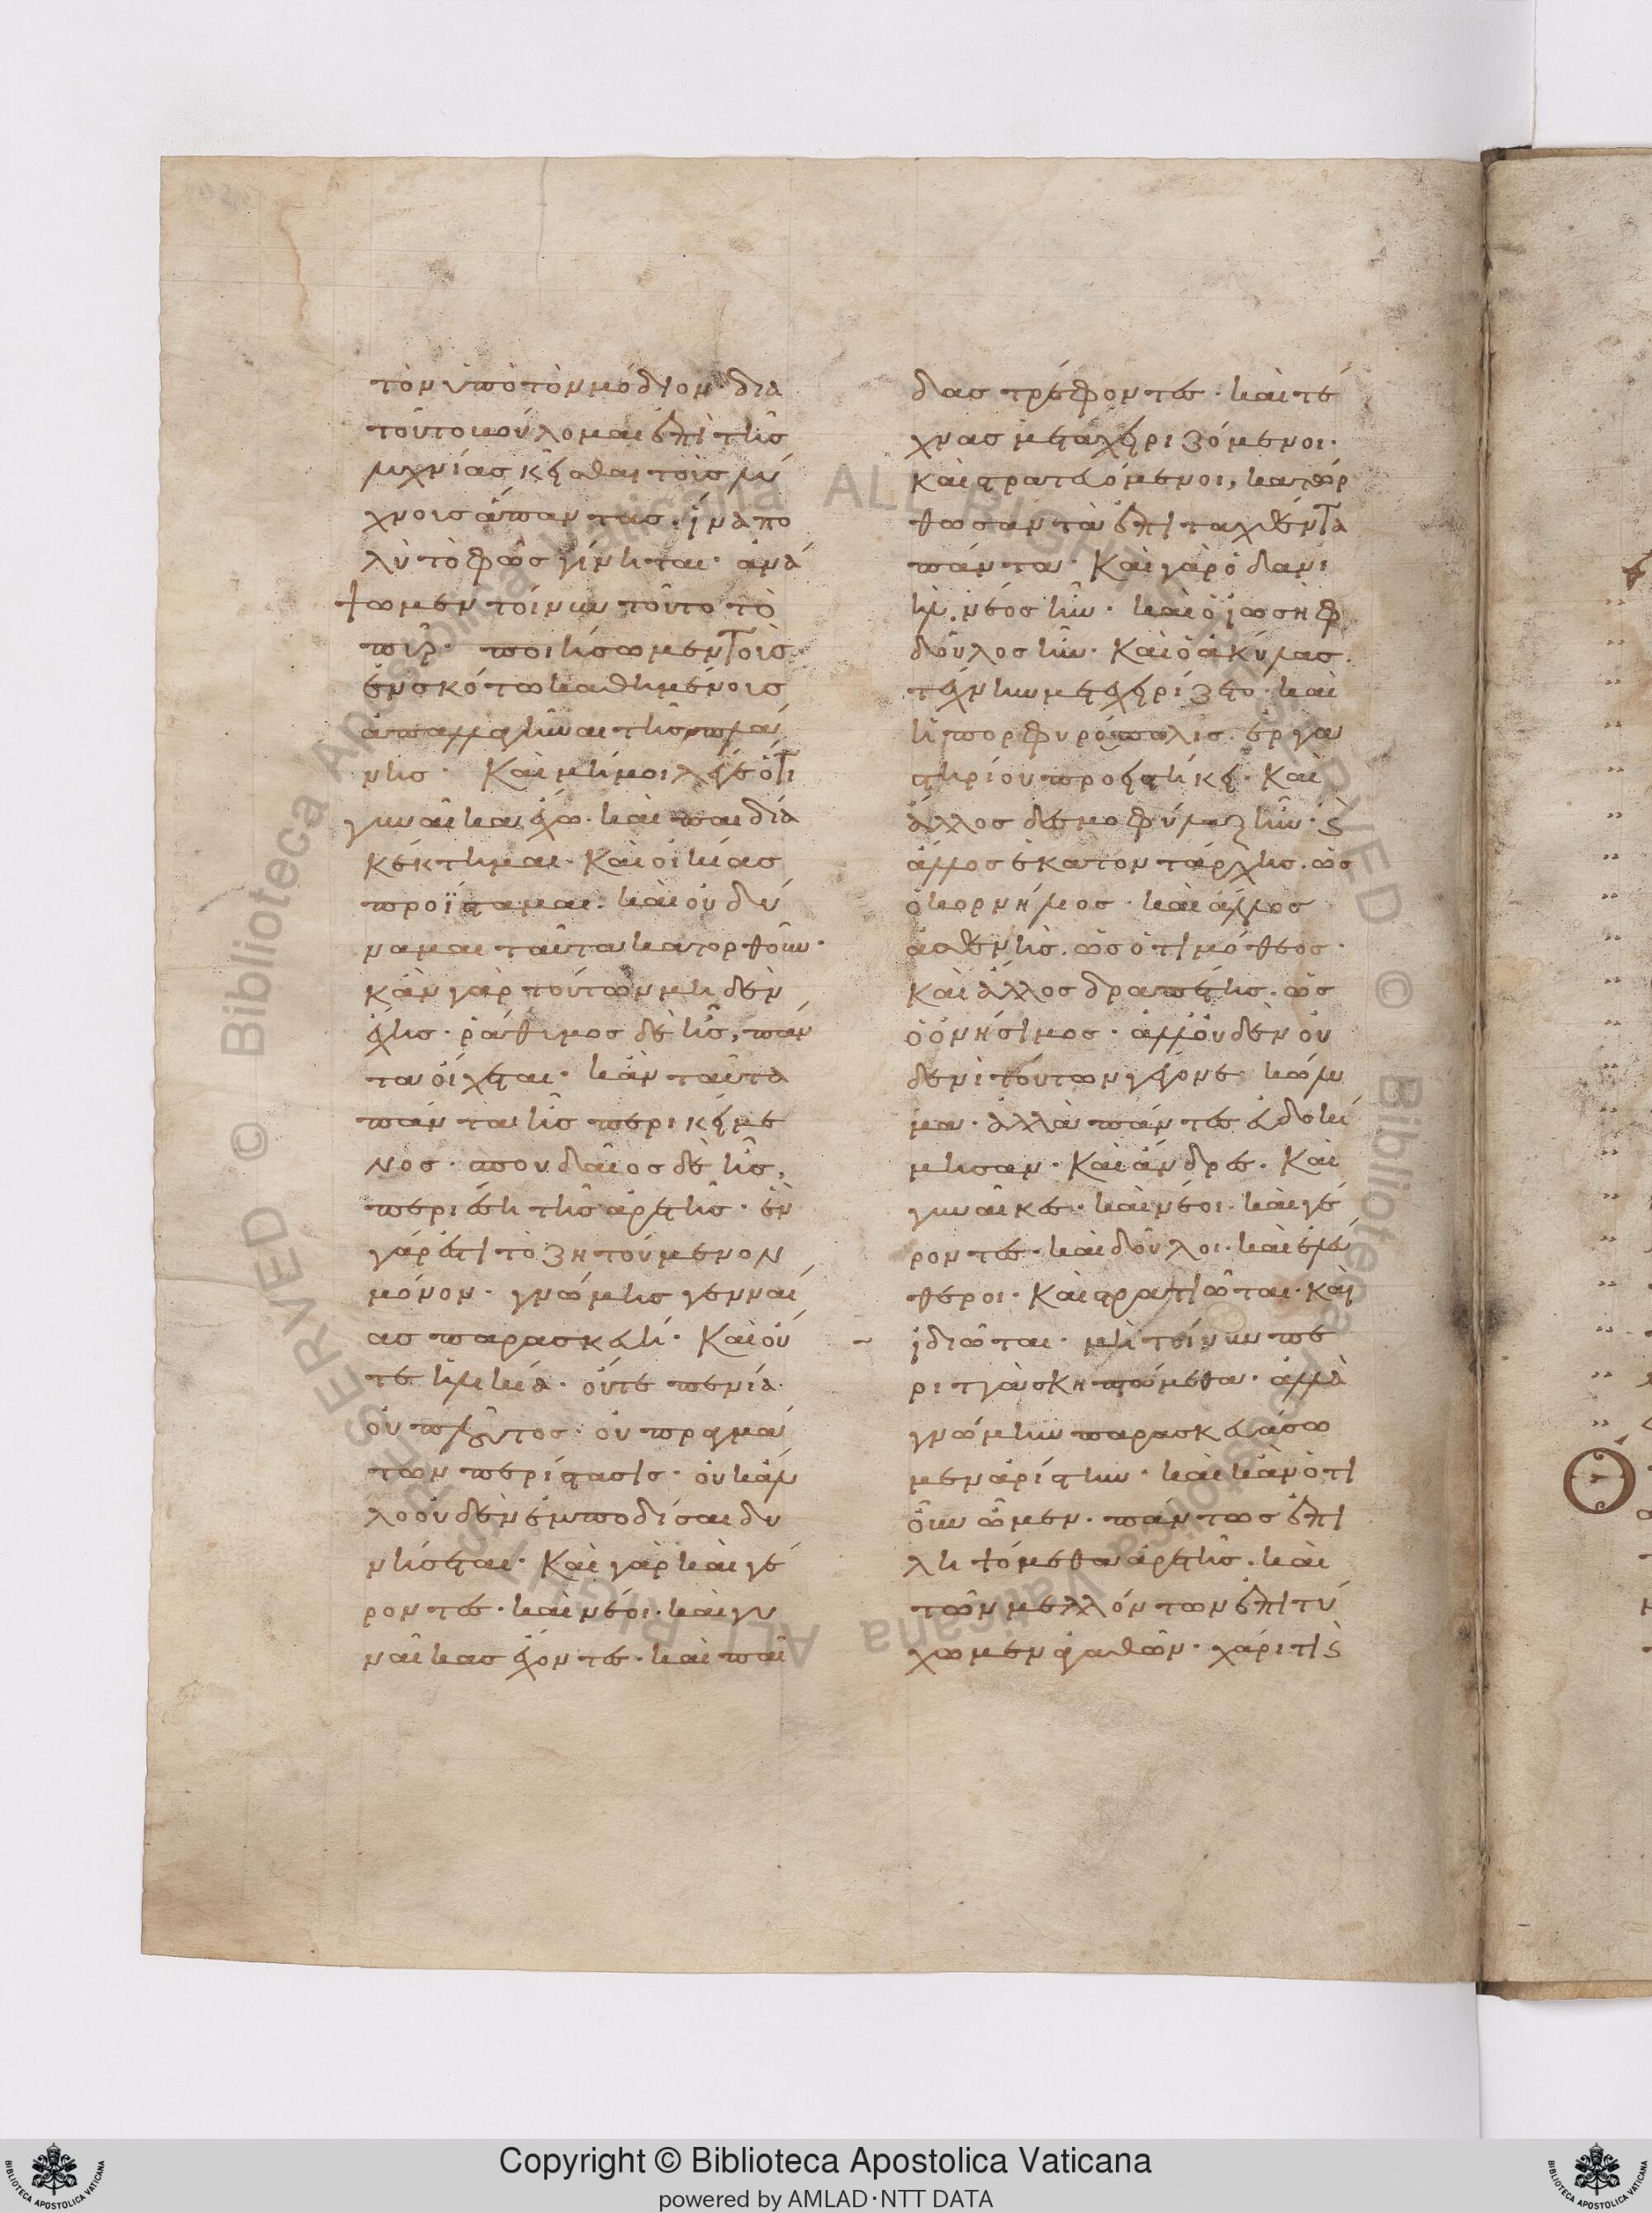 τὸν ὑπὸ τὸν μόδιον· δια
τοῦτο βούλομαι ἐπὶ τῆς
λυχνίας κεῖσθαι τοῖς λύ
χνοις ἅπαντας. ἵνα πο
λὺ τὸ φῶς γίνηται· ἀνά
ψωμεν τοίνυν τοῦτο τὸ
πῦρ· ποιήσωμεν τοῖς
ἐν σκότω καθημένοις
ἀπαλλαγῆναι τῆς πλά
νης· Καὶ μή μοι λέγε ὅτι
γυναῖκα ἔχω. καὶ παιδία
κέκτημαι· Καὶ οἰκίας
προΐσταμαι. καὶ οὐ δύ
ναμαι ταῦτα κατορθοῦν·
κἂν γὰρ τούτων μηδὲν
ἔχης· ῥάθυμος δὲ ἧς, πάν
τα οἴχεται· κἂν ταῦτα
πάντα ἧς περικείμε
νος· σπουδαῖος δὲ ἧς,
περιέση τῆς ἀρετῆς· ἓν
γάρ ἐστι τὸ ζητούμενον
μόνον· γνώμης γενναί
ας παρασκευή· Καὶ οὔ
τε ἡλικία· οὔτε πενία·
οὐ πλοῦτος· οὐ πραγμά
των περίστασις· οὐκ ἄλ
λο οὐδὲν ἐμποδίσαι δυ
νήσεται· Καὶ γὰρ καὶ γέ
ροντες· καὶ νέοι· καὶ γυ
ναῖκας ἔχοντες· καὶ παῖ
δας τρέφοντες· καὶ τέ
χνας μεταχειριζόμενοι·
Καὶ στρατευόμενοι, κατώρ
θωσαν τὰ ἐπιταχθέντα
πάντα· Καὶ γὰρ ὁ δανι
ὴλ νέος ἦν· καὶ ὁ ἰωσὴφ
δοῦλος ἦν· Καὶ ὁ ἀκύλας
τέχνην μετεχειρίζετο· καὶ
ἡ πορφυρόπωλις ἐργα
στηρίου προειστήκει· Καὶ
ἄλλος δεσμοφύλαξ ἦν· ϛ
ἄλλος ἑκατοντάρχης. ὡς
ὁ κορνήλιος· καὶ ἄλλος
ἀσθενὴς. ὡς ὁ τιμόθεος·
Καὶ ἄλλος δραπέτης. ὡς
ὁ ὀνήσιμος· ἀλλ' οὐδὲν οὐ
δενὶ τούτων γέγονε κώλυ
μα· ἀλλὰ πάντες εὐδοκί
μησαν· Καὶ ἄνδρες. Καὶ
γυναῖκες· καὶ νέοι· καὶ γέ
ροντες· καὶ δοῦλοι· καὶ ἐλεύ
θεροι· Καὶ στρατιῶται· καὶ
ἰδιῶται· μὴ τοίνυν πε
ριττὰ σκηπτώμεθα· ἀλλὰ
γνώμην παρασκευάσω
μεν ἀρίστην· καὶ κἂν ὁτι
οῦν ὦμεν· πάντως ἐπι
ληψόμεθα ἀρετῆς. καὶ
τῶν μελλόντων ἐπιτύ
χωμεν ἀγαθῶν· χάριτι ϛ
Copyright © Biblioteca Apostolica Vaticana
powered by AMLAD·NTT DATA